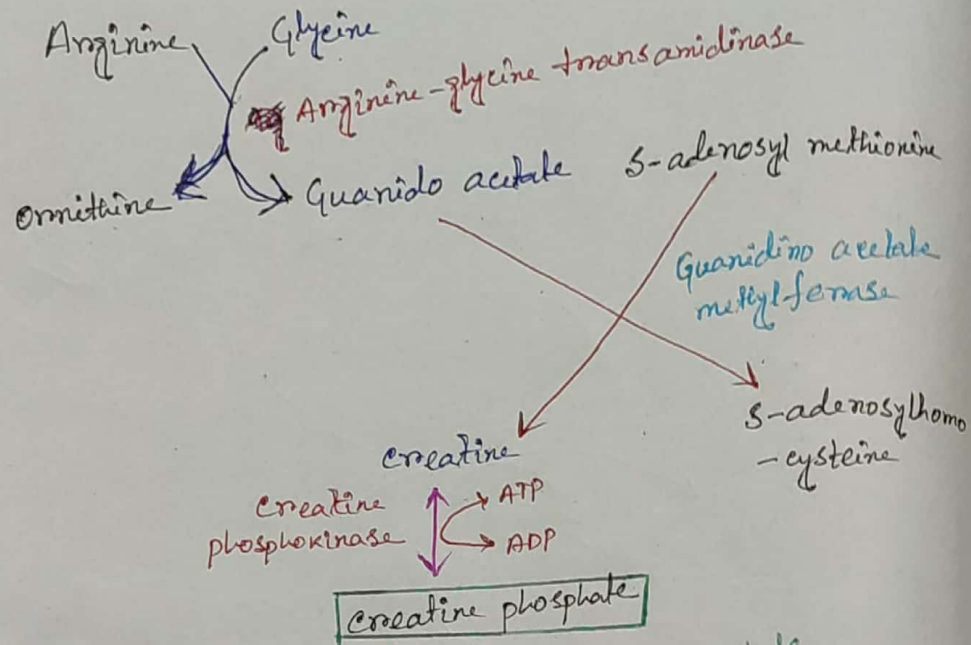 Arginine Glycine
Arginine-glycine transamidinase
S-adenosyl methionine
Ornithine Guanido acetate
Guanidino acetate
methylferase
S-adenosylhomo
-cysteine
creatine
Creatine
phosphokinase
ATP
ADP
Creatine phosphate